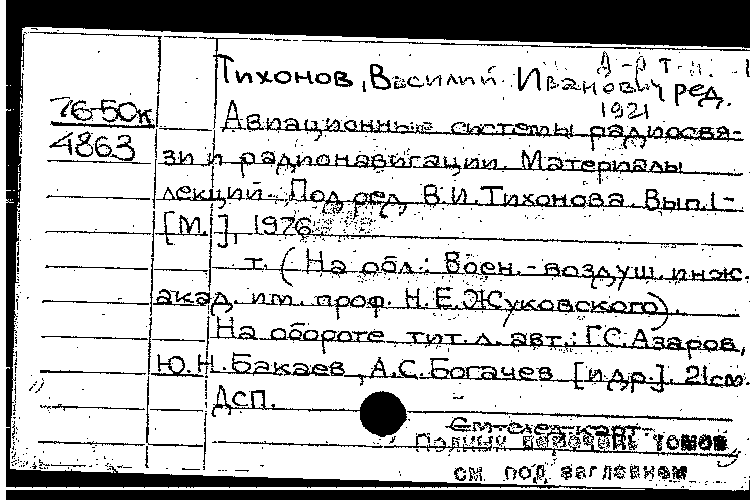 Д-р т. н.
Тихонов, Василий Иванович ред.
1921
76-50к
4863
Авиационные системы радиосвя-
зи и радионавигации. Материалы
лекций. Под ред. В.И. Тихонова. Вып. 1-
[М.], 1976
т. (На обл.: Воен.-воздуш. инж.
акад. им. проф. Н.Е. Жуковского).
На обороте тит. л. авт.: Г.С. Азаров,
Ю.Н. Бакаев, А.С. Богачев [и др.]. 21см.
ДСП.
См. след. карт.
Полный перечень томов
см. под заглавием